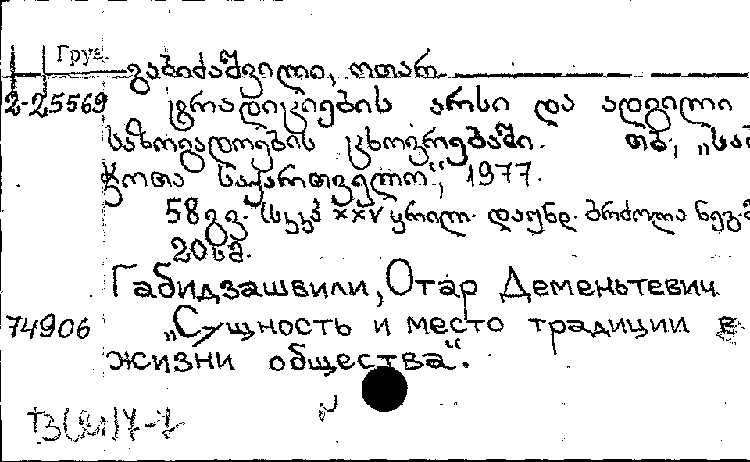 Груз.
გაბიძაშვილი, ოთარ
2-25569 ტრადიციების არსი და ადგილი
საზოგადოების ცხოვრებაში. თბ., „საბ
ჭოთა საქართველო“, 1977.
58 გვ. სკკპ XXV ყრილ. დაუნდ.
20 სმ.
Габидзашвили, Отар Дементьевич
74906 „Сущность и место традиции в
жизни общества“.